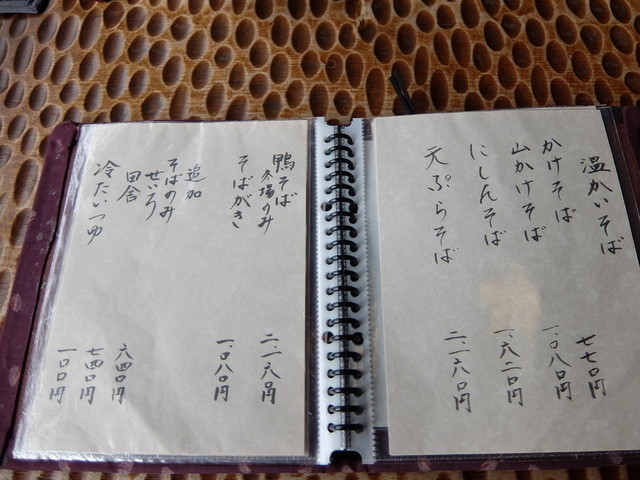 温かいそば
かけそば 七七〇円
山かけそば 一、〇八〇円
にしんそば 一、六二〇円
天ぷらそば 二、一六〇円
鴨そば
冬場のみ 二、一六〇円
そばがき 一、〇八〇円
追加
そばのみ
せいろ 六四〇円
田舎 七四〇円
冷たいつゆ 一〇〇円